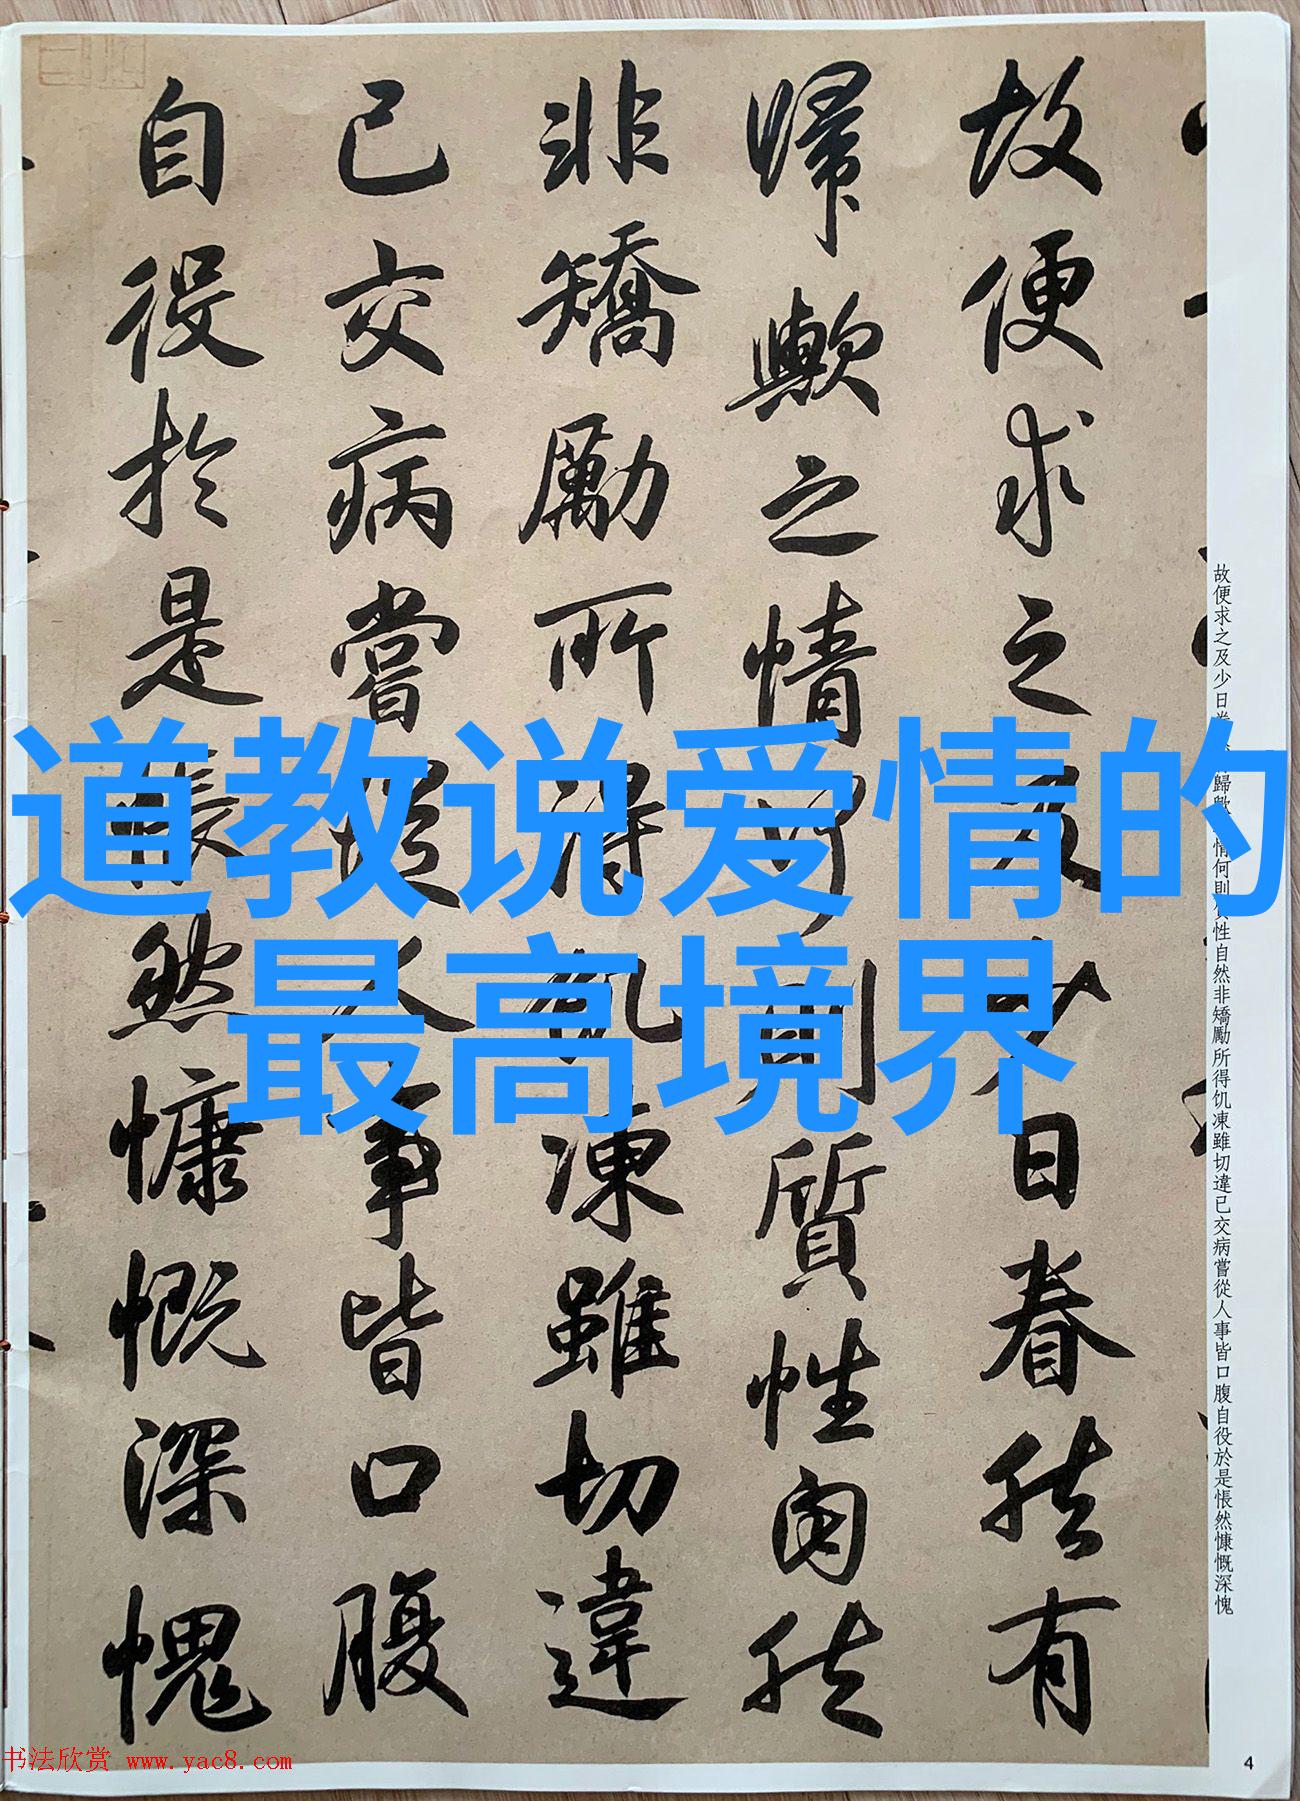 故便求之及少日眷然有
歸歟之情何則質性自然
非矯勵所得飢凍雖切違
已交病嘗從人事皆口腹
自役於是悵然慷慨深愧
道教说爱情的
最高境界
故便求之及少日眷 歸歟 情何則質性自然非矯勵所得饥凍雖切違已交病嘗從人事皆口腹自役於是悵然慷慨深愧
书法欣赏 www.yac8.com
4